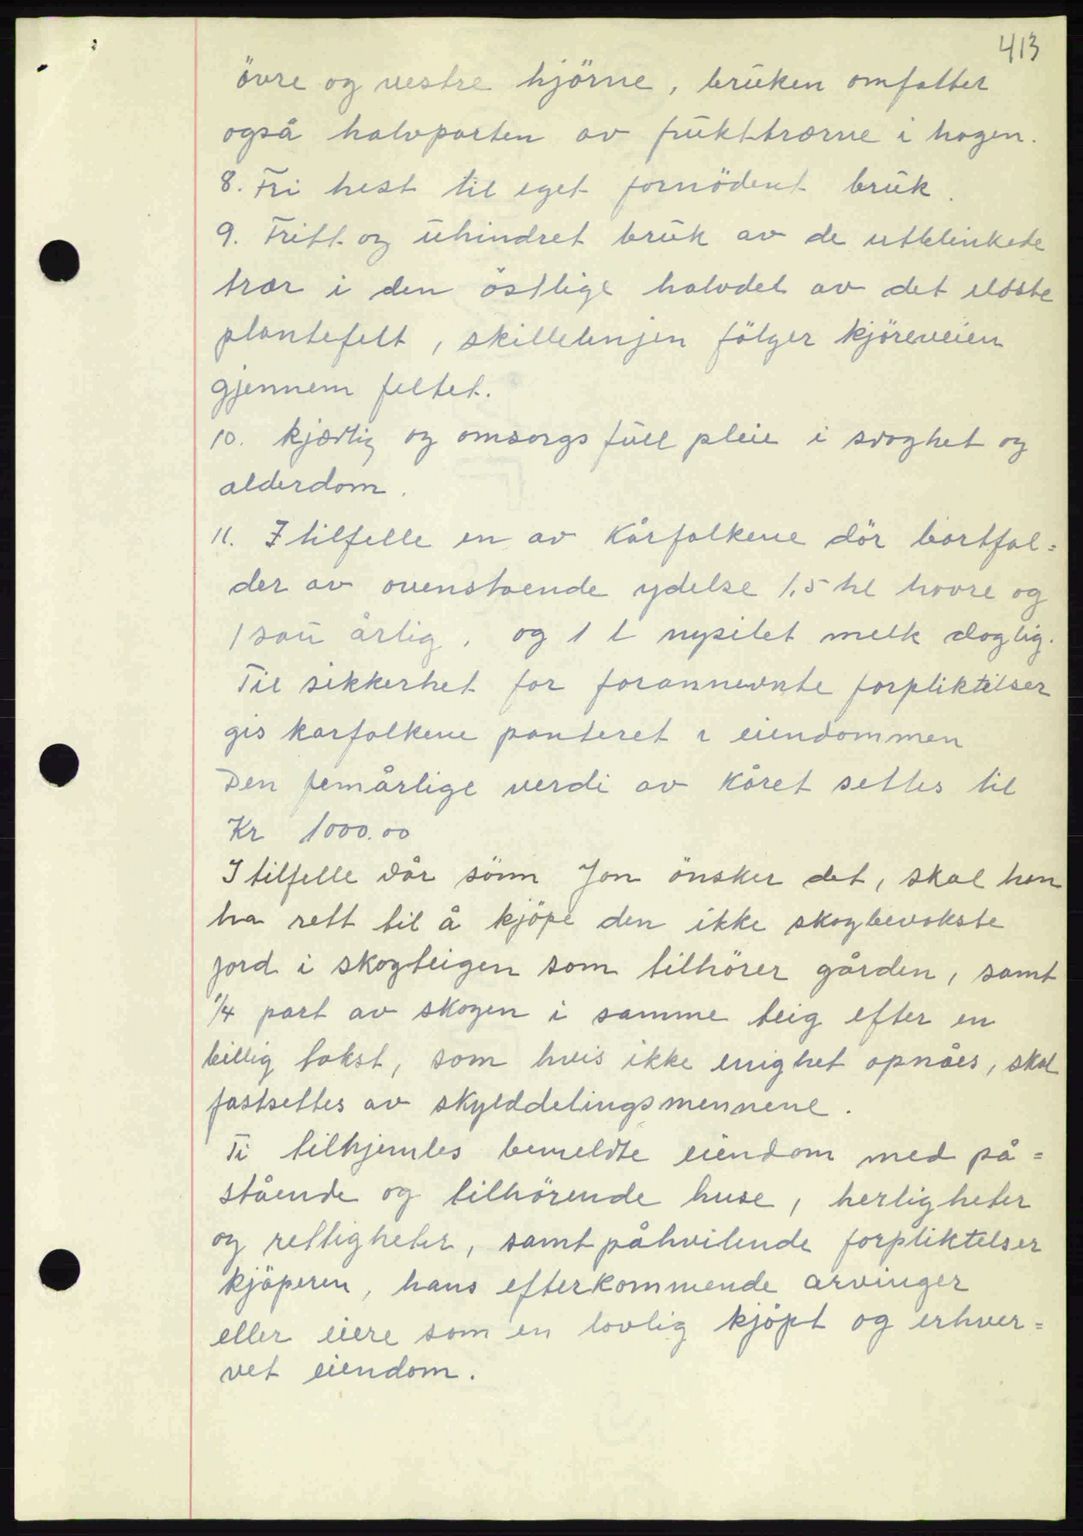 413
övre og vestre hjörne, brüken omfatter
også halvparten av frükttrærne i hagen.
8. Fri hest til eget fornödent brük.
9. Fritt og ühindret brük av de utblinkede
trær i den östlige halvdel av det eldste
plantefelt, skillelinjen fölger kjöreveien
gjennem feltet.
10. kjærlig og omsorgsfüll pleie i svaghet og
alderdom.
11. I tilfelle en av kårfolkene dör bortfal=
der av ovenstaende ydelse 1,5 hl havre og
1 saü årlig, og 1 l nysilet melk daglig.
Til sikkerhet for forannevnte forpliktelser
gis karfolkene panteret i eiendommen
Den femårlige verdi av kåret settes til
Kr 1000.00
I tilfelle vår sönn Jon önsker det, skal han
ha rett til å kjöpe den ikke skogbevokste
jord i skogteigen som tilhörer gården, samt
1/4 part av skogen i samme teig efter en
billig takst, som hvis ikke enighet opnåes, skal
fastsettes av skylddelingsmennene.
Ti tilhjemles bemeldte eiendom med på=
stående og tilhörende huse, herligheter
og rettigheter, samt påhvilende forpliktelser
kjöperen, hans efterkommende arvinger
eller eiere som en lovlig kjöpt og erhver=
vet eiendom.